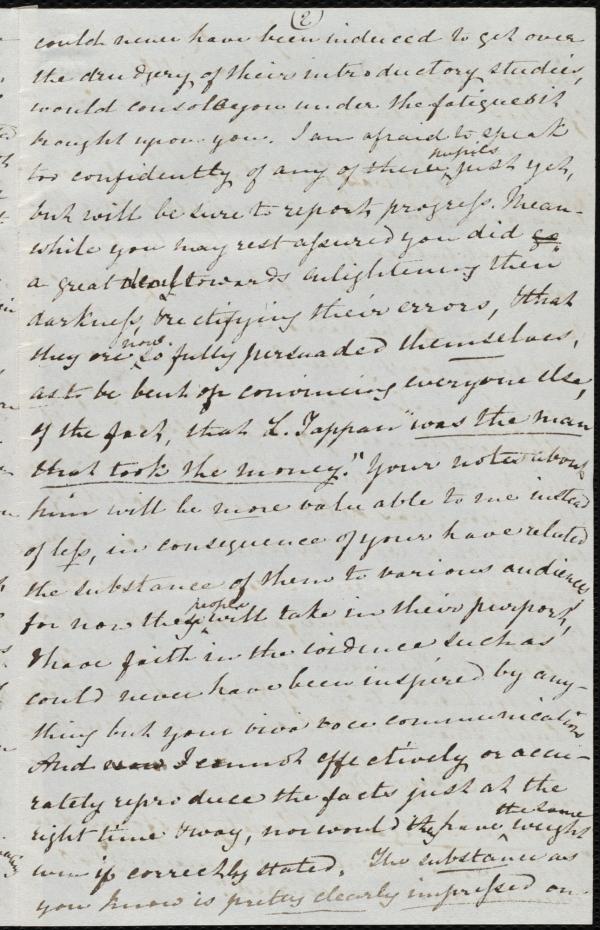 (2)
could never have been induced to get over
the drudgery of their introductory studies,
would console you under the fatigues it
brought upon you. I am afraid to speak
too confidently of any of these pupils just yet,
but will be sure to report progress. Mean-
while you may rest assured you did go
a great deal towards enlightening their
darkness, & rectifying their errors, & that
they are now so fully persuaded themselves,
as to be bent on convincing everyone else,
of the fact, that L. Tappan "was the man
that took the money." Your notes about
him will be more valuable to me instead
of less, in consequence of your have related
the substance of them to various audiences,
for now the people will take in their purport,
& have faith in the evidence such as
could never have been inspired by any-
thing but your viva voce communication
And I cannot effectively or accu-
rately reproduce the facts just at the
right time & way, nor would they have the same weight
even if correctly stated. The substance as
you know is pretty clearly impressed on